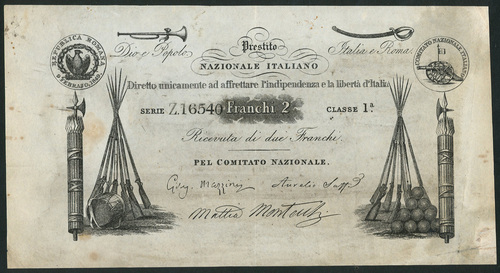 Prestito
Dio e Popolo
Italia e Roma
REPUBLICA ROMANA
9 FEBRAJO 1849
COMITATO NAZIONALE ITALIANO
NAZIONALE ITALIANO
Diretto unicamente ad affrettare l'indipendenza e la libertà d'Italia
SERIE Z.16540 Franchi 2 CLASSE 1.ª
Ricevuta di due Franchi.
PEL COMITATO NAZIONALE.
Gius. Mazzini Aurelio Saffi
Mattia Montecchi